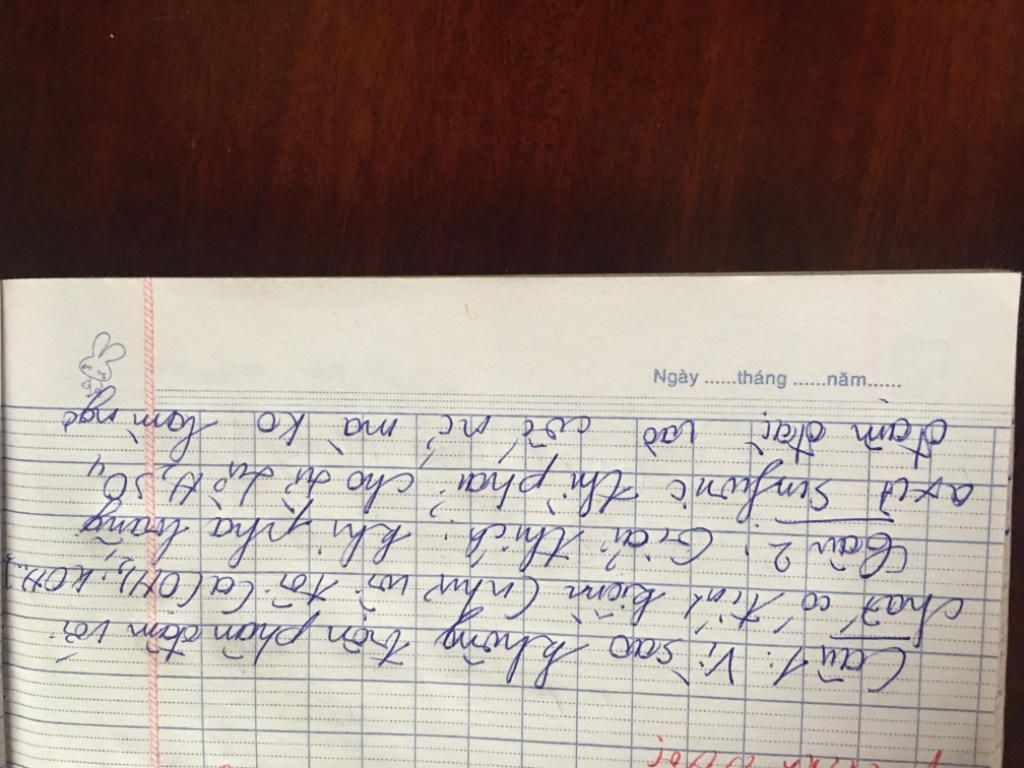 Ngày ......tháng ......năm......
Câu 1: Vì sao không trộn phân đạm với
chất có tính kiềm (như vôi tôi Ca(OH)₂; KOH..)
Bài 2: Giải thích: khi pha loãng
axit Sunfuric thì phải cho từ từ H₂SO₄
đậm đặc vào nước mà ko làm